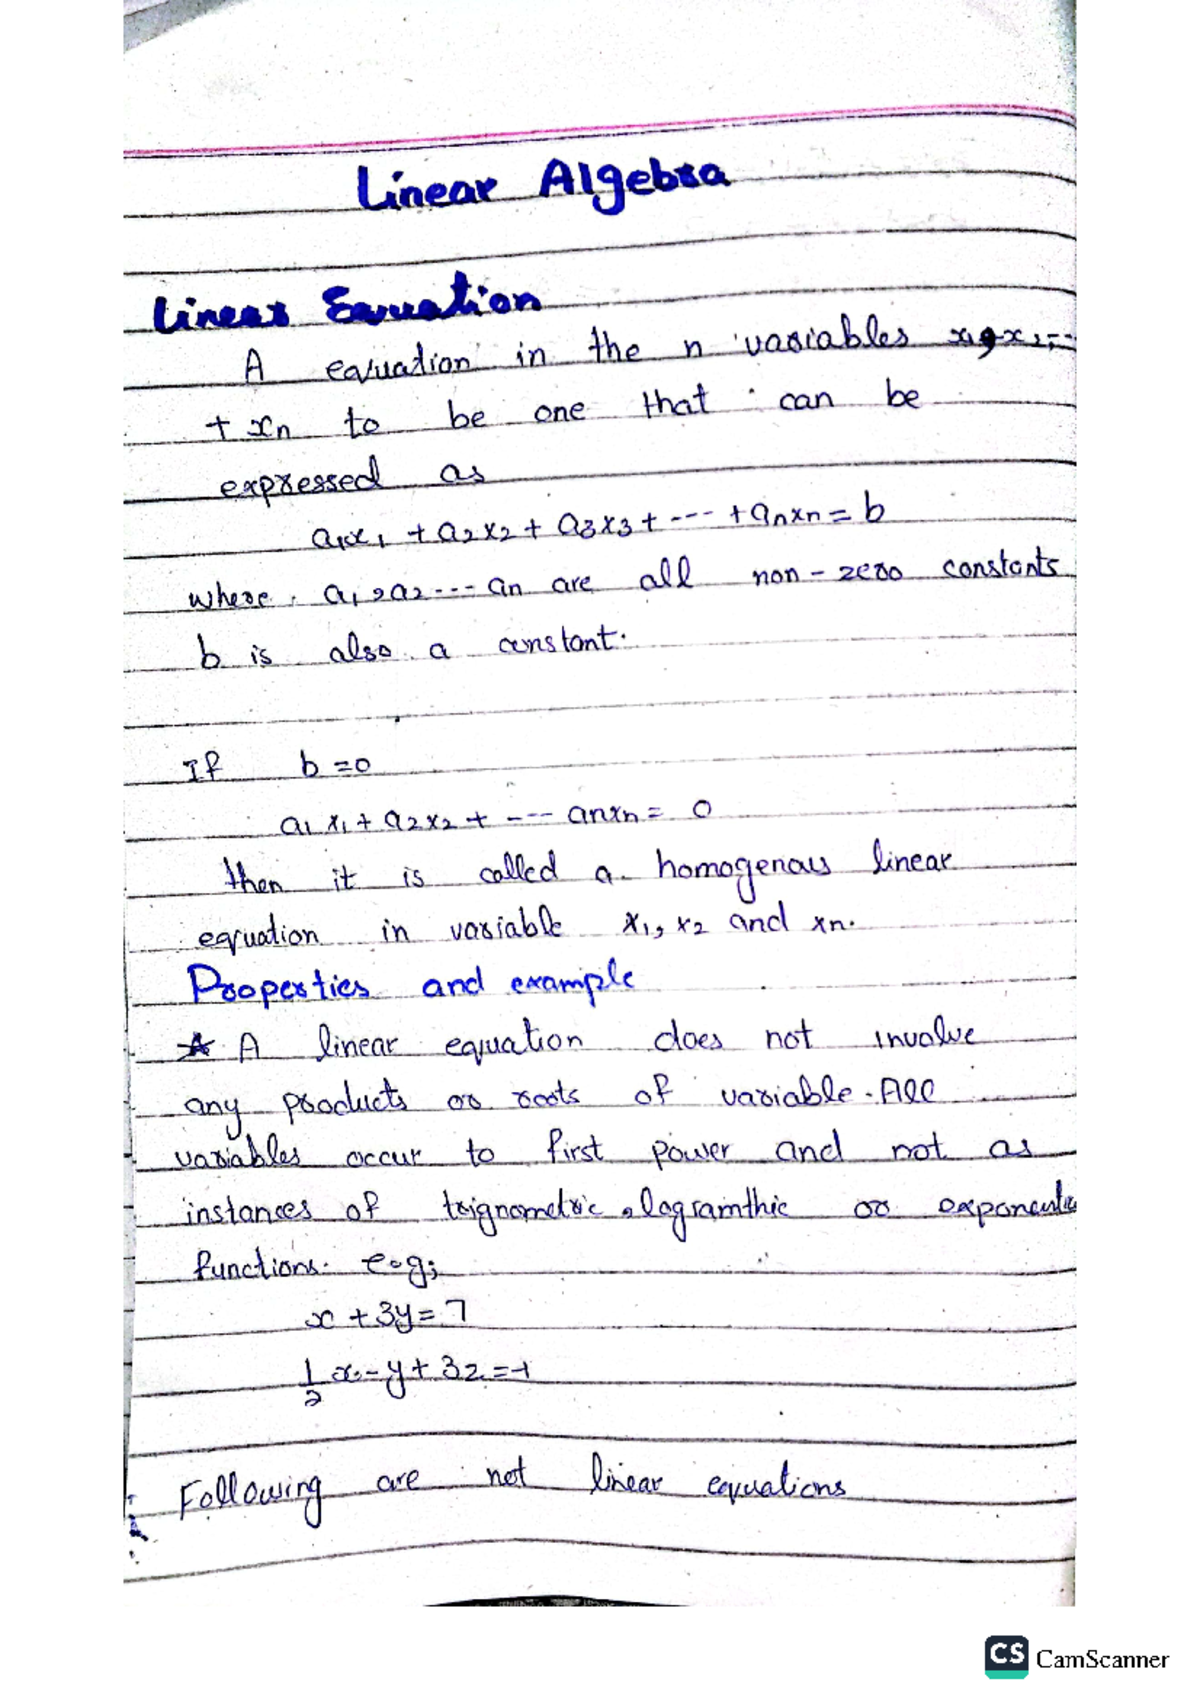 Linear Algebra
Linear Equation
A equation in the n variables x₁, x₂, --
+ xn to be one that can be
expressed as
a₁x₁ + a₂x₂ + a₃x₃ + --- + anxn = b
where a₁, a₂ --- an are all non-zero constants
b is also a constant.
If b = 0
a₁x₁ + a₂x₂ + --- anxn = 0
then it is called a homogenous linear
equation in variable x₁, x₂ and xn.
Properties and example
* A linear equation does not involve
any products or roots of variable. All
variables occur to first power and not as
instances of trignometric, logramthic or
functions. e.g;
x + 3y = 7
1/2 x - y + 3z = -1
Following are not linear equations
CS CamScanner